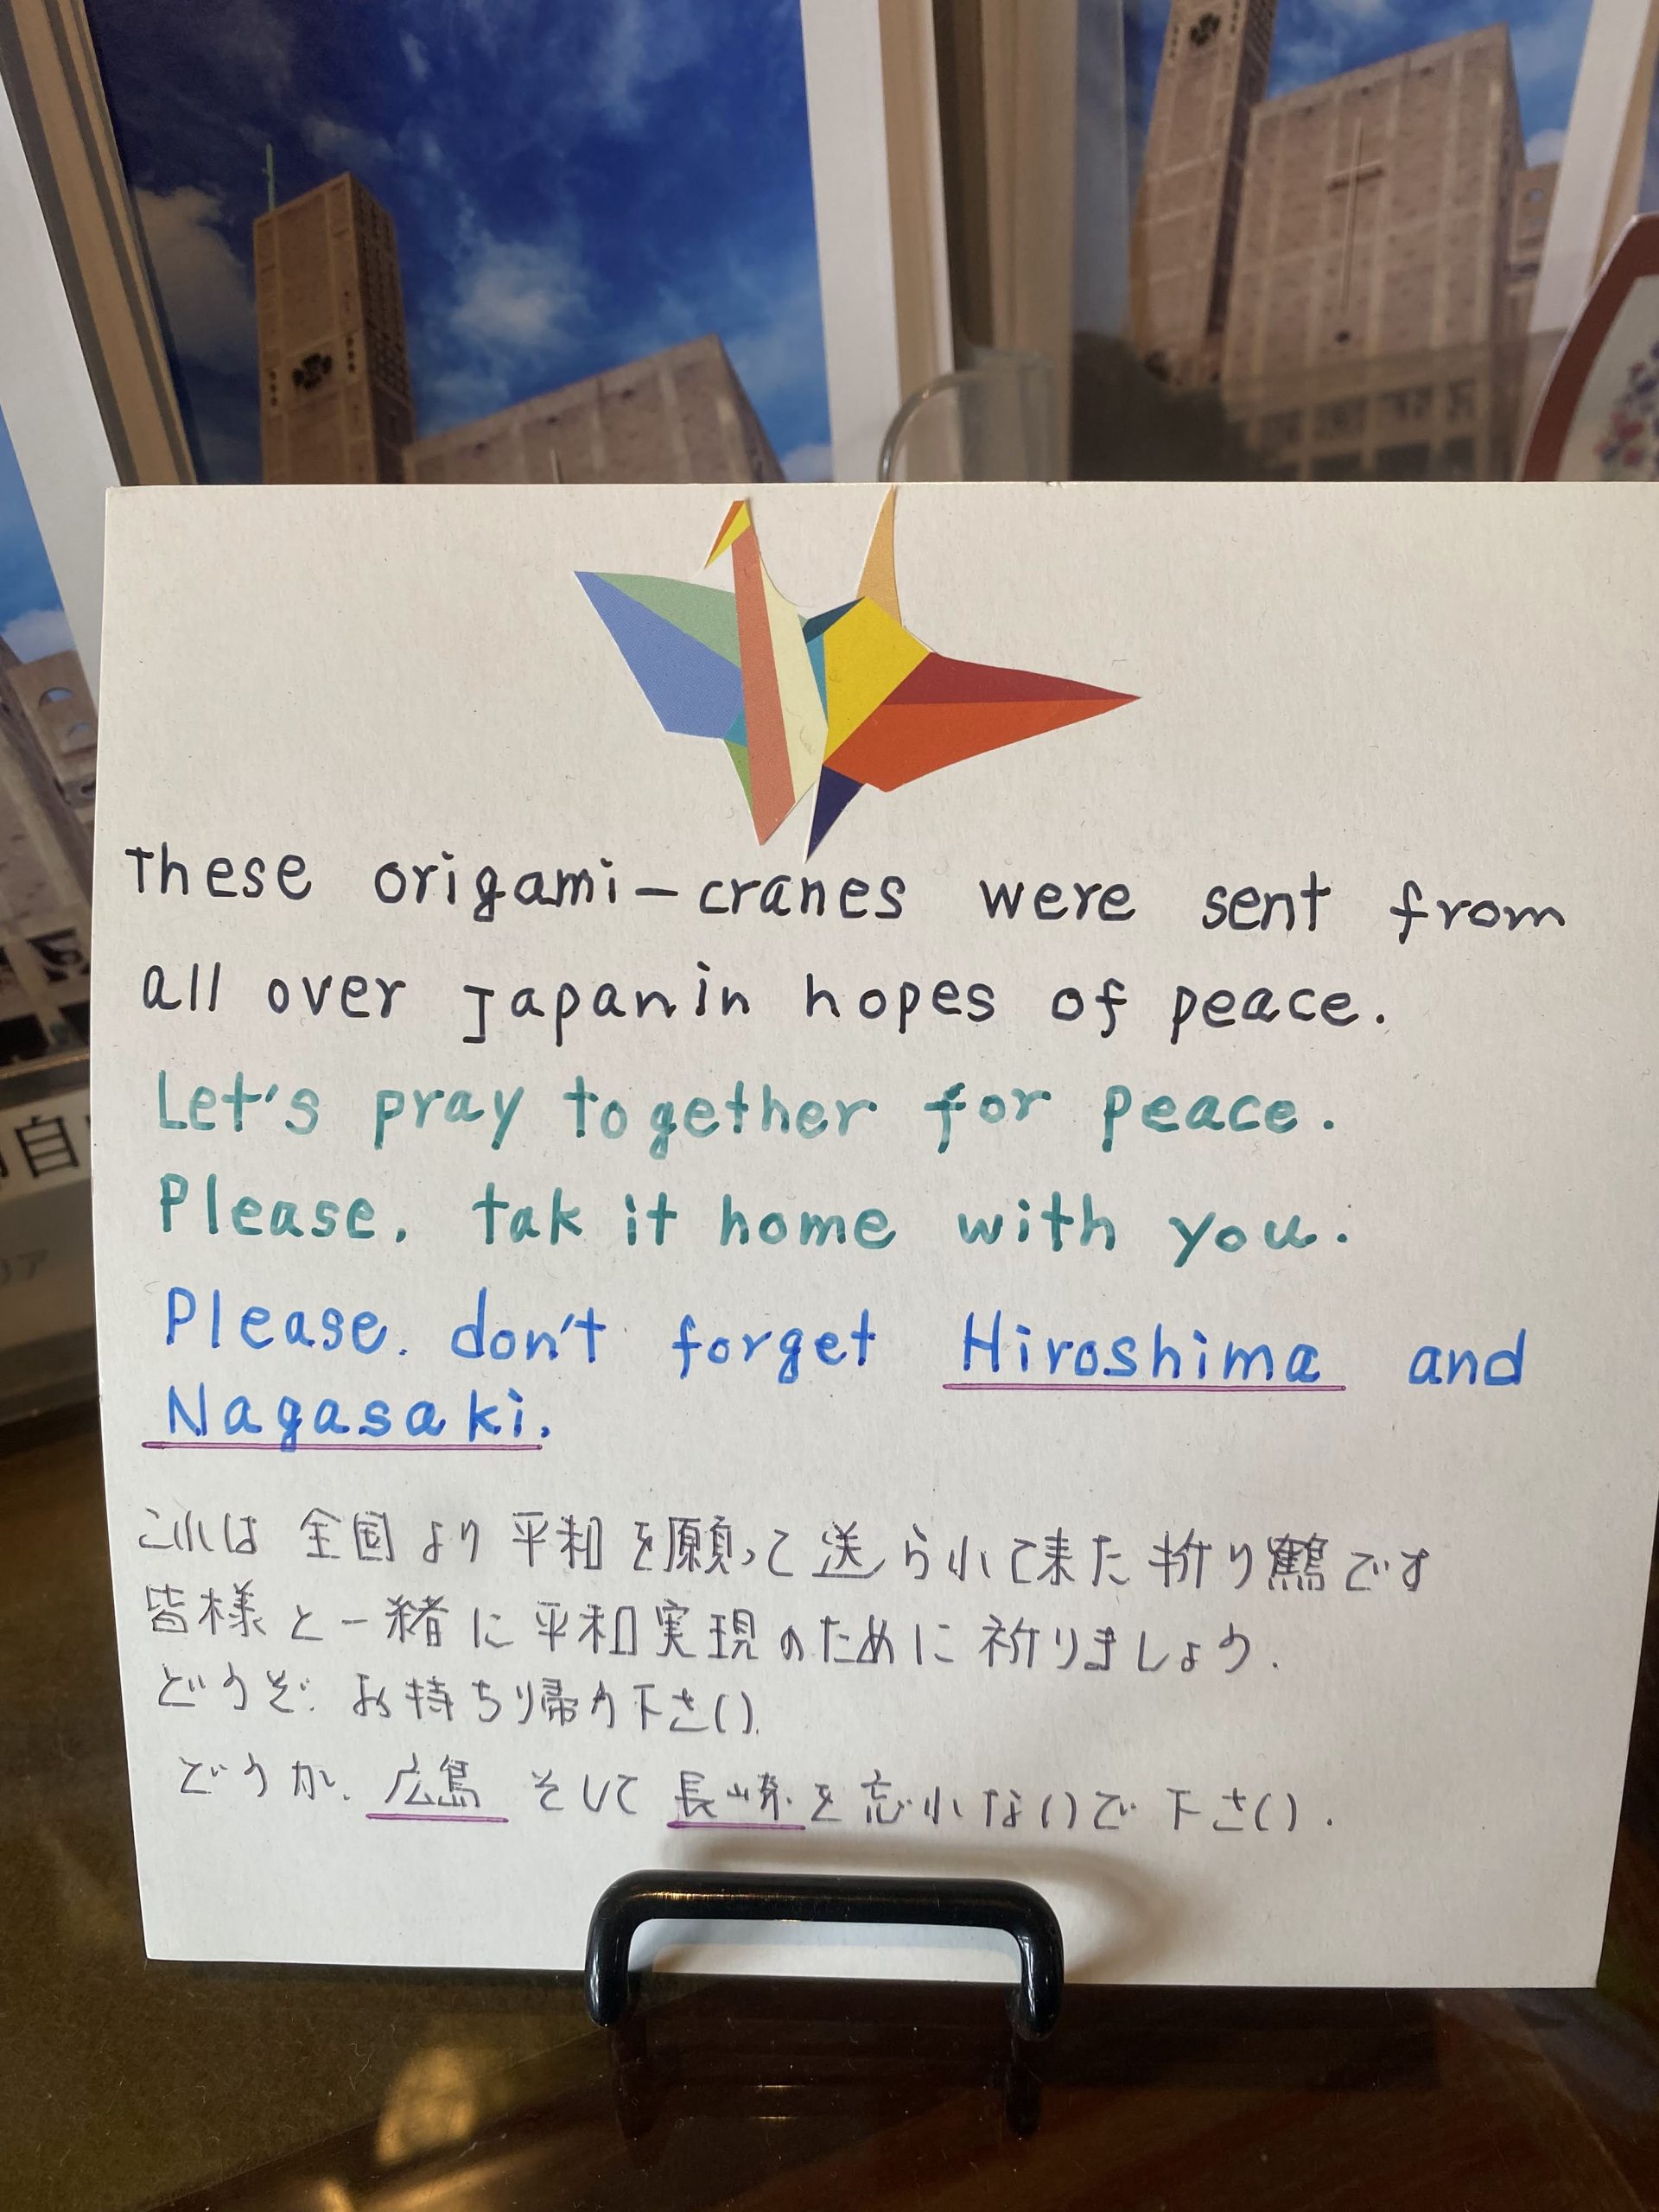 These origami-cranes were sent from
all over Japan in hopes of peace.
Let's pray together for peace.
Please. tak it home with you.
Please. don't forget Hiroshima and
Nagasaki.
これは 全国より 平和を願って送られて来た折り鶴です
皆様と一緒に平和実現のために祈りましょう.
どうぞ. お持ちり帰り下さい.
どうか. 広島 そして 長崎を忘れないで下さい.
自
リア